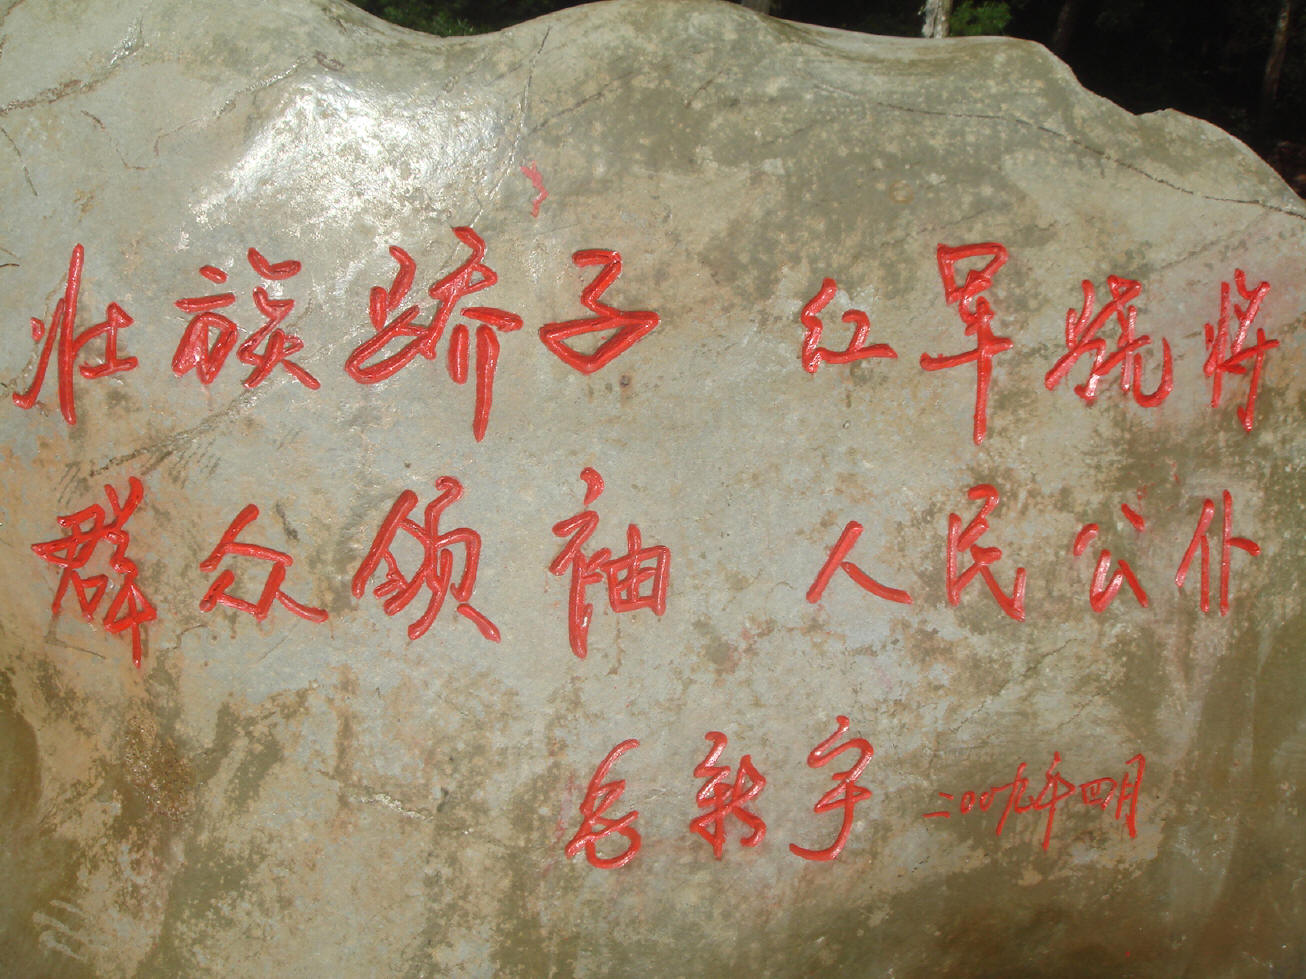 壮族骄子 红军骁将
群众领袖 人民公仆
毛新宇 二〇〇九年四月